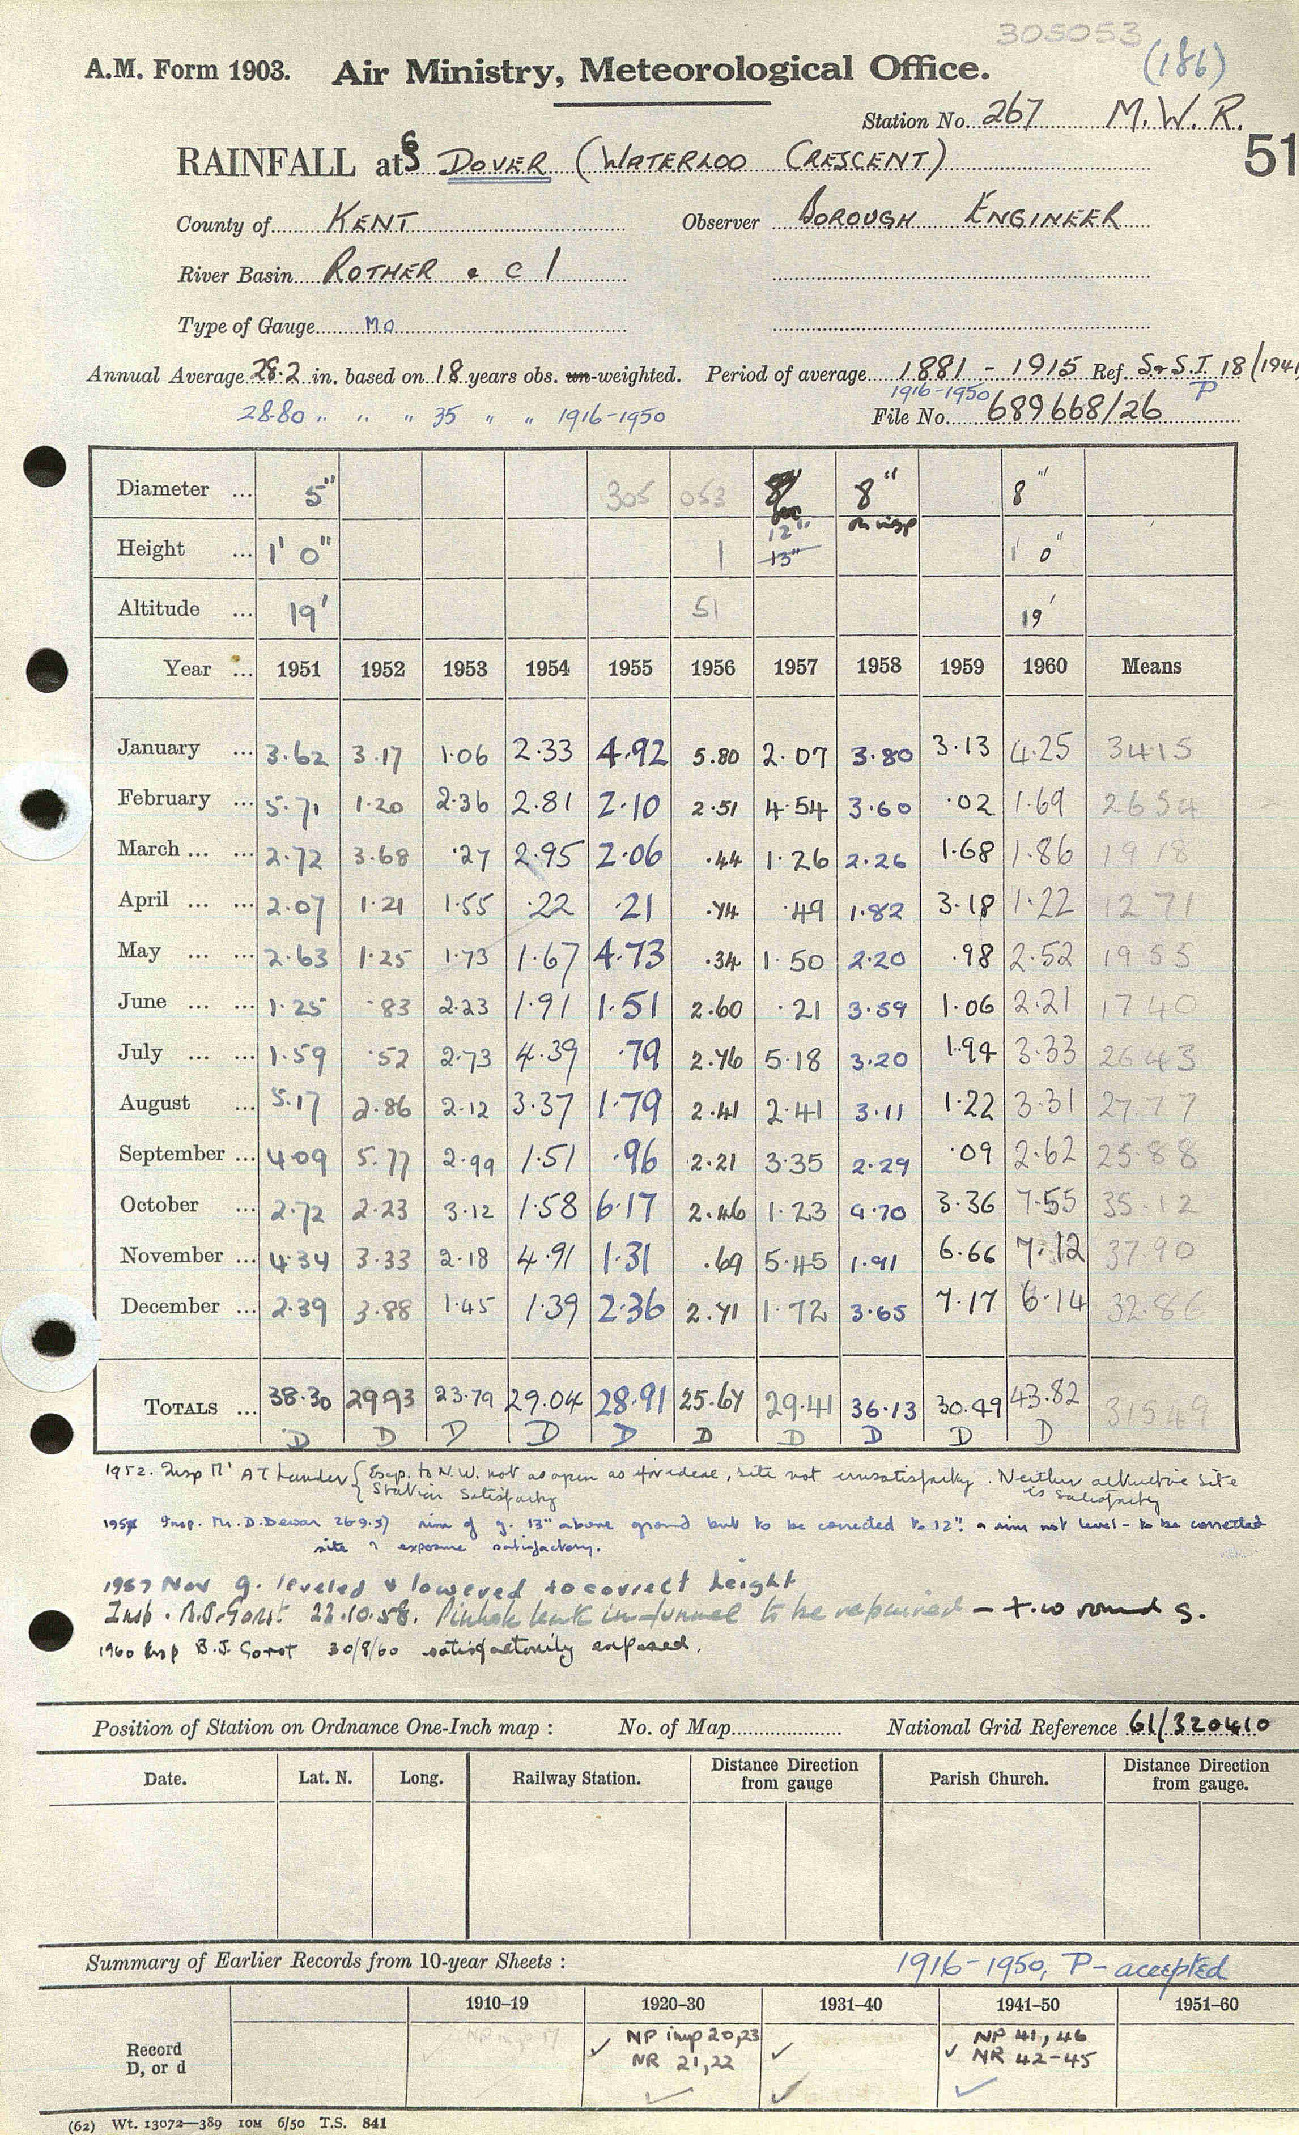 305053
(186)
A.M. Form 1903. Air Ministry, Meteorological Office.
Station No. 267 M.W.R.
RAINFALL at DOVER (WATERLOO CRESCENT) 51
County of KENT Observer BOROUGH ENGINEER
River Basin ROTHER & C 1
Type of Gauge MO
Annual Average 28.2 in. based on 18 years obs. un-weighted. Period of average 1881 - 1915 Ref. S.&S.I 18/1941
28.80 " " " 35 " " 1916-1950 1916-1950 P
File No. 689668/26
Diameter ... 5" 305 053 8" 8" 8"
Height ... 1' 0" 1 12" 13" 1' 0"
Altitude ... 19' 51 19'
Year ... 1951 1952 1953 1954 1955 1956 1957 1958 1959 1960 Means
January ... 3.62 3.17 1.06 2.33 4.92 5.80 2.07 3.80 3.13 4.25 3415
February ... 5.71 1.20 2.36 2.81 2.10 2.51 4.54 3.60 .02 1.69 2654
March ... ... 2.72 3.68 .27 2.95 2.06 .44 1.26 2.26 1.68 1.86 1918
April ... ... 2.07 1.21 1.55 .22 .21 .74 .49 1.82 3.18 1.22 1271
May ... ... 2.63 1.25 1.73 1.67 4.73 .34 1.50 2.20 .98 2.52 1955
June ... ... 1.25 .83 2.23 1.91 1.51 2.60 .21 3.59 1.06 2.21 1740
July ... ... 1.59 .52 2.73 4.39 .79 2.76 5.18 3.20 1.94 3.33 2643
August ... 5.17 2.86 2.12 3.37 1.79 2.41 2.41 3.11 1.22 3.31 2777
September ... 4.09 5.77 2.99 1.51 .96 2.21 3.35 2.29 .09 2.62 25.88
October ... 2.72 2.23 3.12 1.58 6.17 2.46 1.23 4.70 3.36 7.55 35.12
November ... 4.34 3.33 2.18 4.91 1.31 .69 5.45 1.91 6.66 7.12 37.90
December ... 2.39 3.88 1.45 1.39 2.36 2.71 1.72 3.65 7.17 6.14 32.86
TOTALS ... 38.30 29.93 23.79 29.04 28.91 25.67 29.41 36.13 30.49 43.82 31549
D D D D D D D D D D
1952. Insp Mr A T Lander { Exp. to N.W. not as open as for ideal, site not unsatisfactory. Neither alternative site
Station satisfactory is satisfactory
1957 Insp. Mr. D. Dewar 26.9.57 rim of g. 13" above ground but to be corrected to 12". & rim not level - to be corrected
site & exposure satisfactory.
1957 Nov g. leveled & lowered to correct height
Insp. B.J. Gorst 22.10.58. Pinhole leak in funnel to be repaired
1960 Insp B.J. Gorst 30/8/60 satisfactorily exposed.
Position of Station on Ordnance One-Inch map : No. of Map National Grid Reference 61/320410
Date. Lat. N. Long. Railway Station. Distance Direction from gauge Parish Church. Distance Direction from gauge.
Summary of Earlier Records from 10-year Sheets : 1916-1950, P - accepted
1910-19 1920-30 1931-40 1941-50 1951-60
Record D, or d
NP imp 20,23 NP 41,46
NR 21,22 NR 42-45
(62) Wt. 13072—389 10M 6/50 T.S. 841